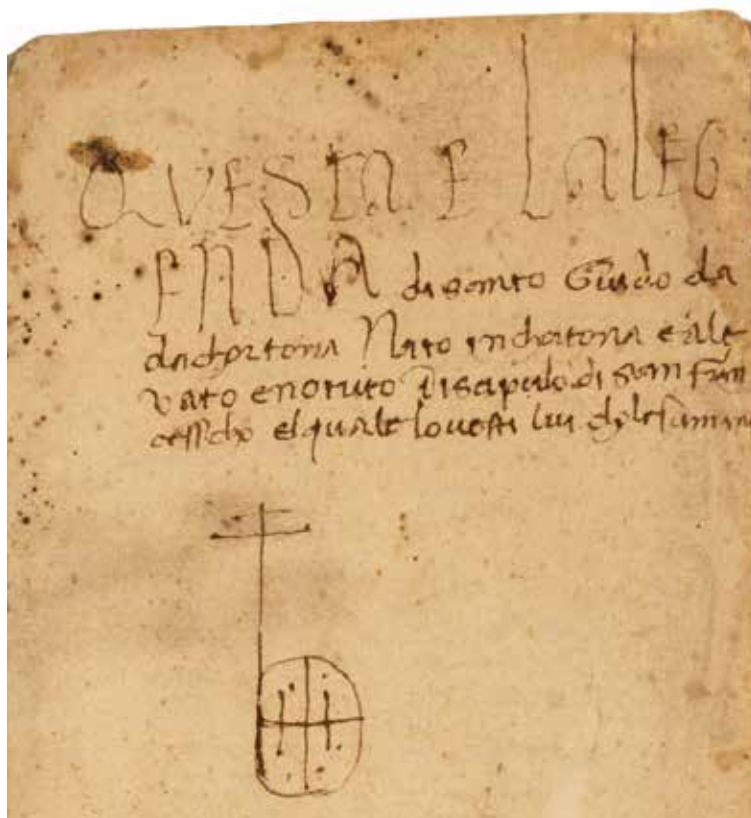 QVESTA E LALEG
ENDA di santo Guido da
dachortona Nato inchortona e ale
vato enotrito Disciepulo di san fran
cescho el quale lo vesti lui